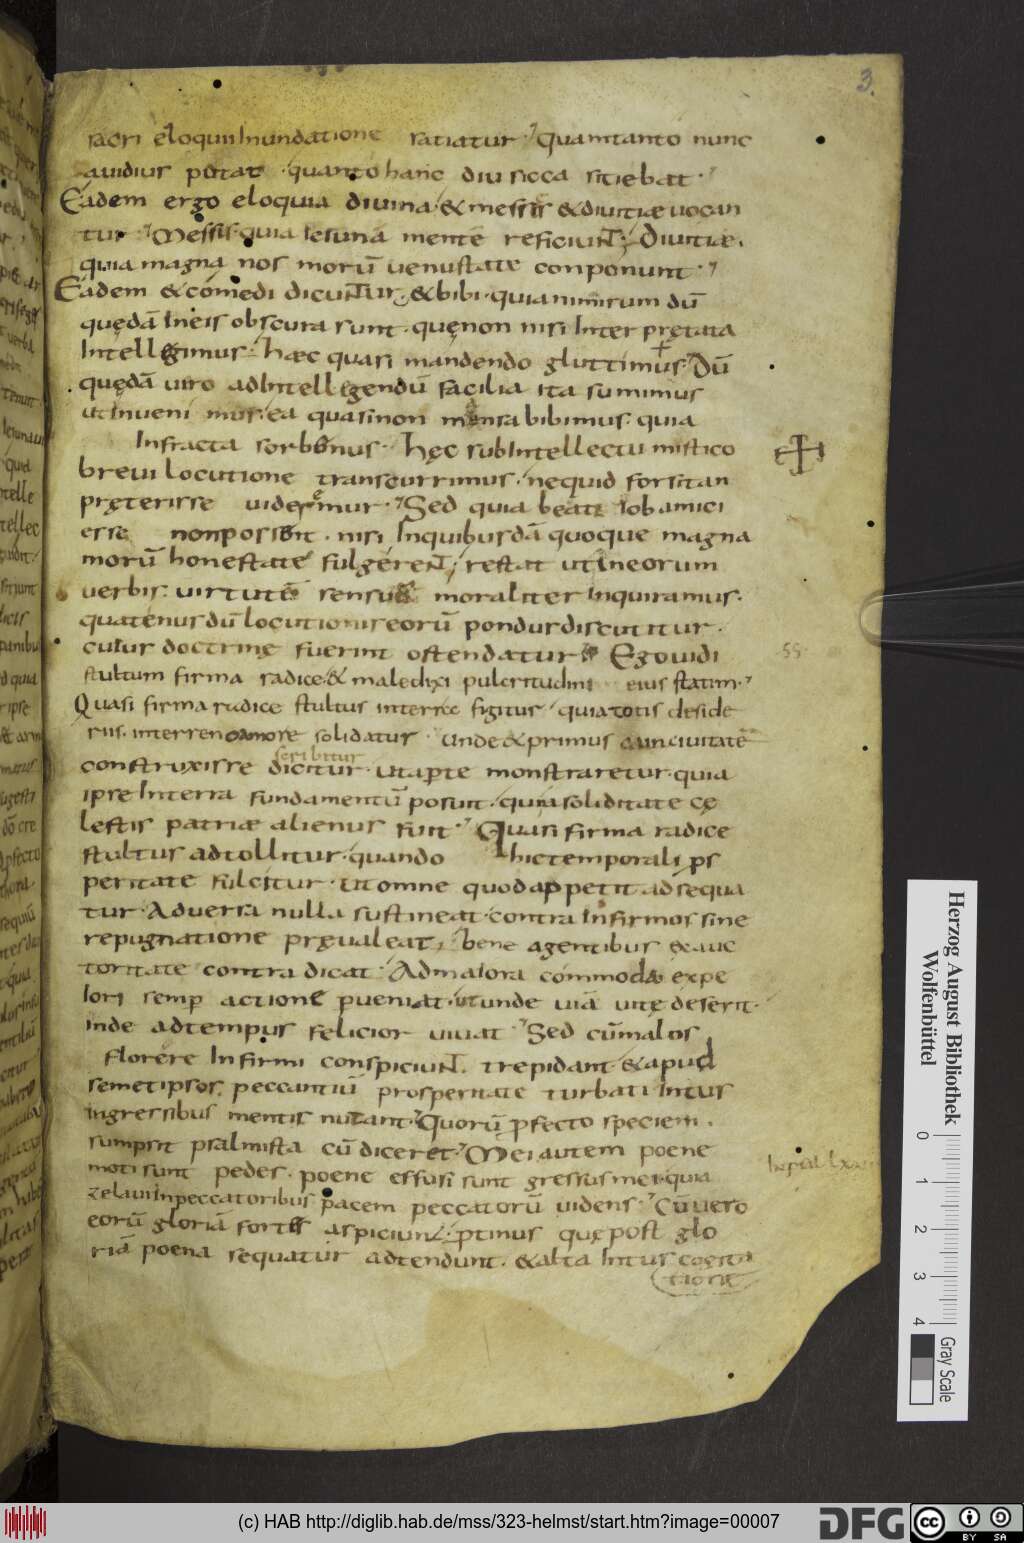 3.
sacri eloquii Inundatione satiatur · quamtanto nunc
auidius putat · quanto hanc diu sicca sitiebat ·
Eadem ergo eloquia diuina · & messis & diuitiæ uocan
tur · Messis · quia Ieiunā mentē reficiunt; Diuitiæ ·
quia magna nos morū uenustate conponunt ·
Eadem & cómedi dicuntur · & bibi · quia nimirum dū
quędā In eis obscura sunt · quę non nisi Inter prętata
Intellegimus · hæc quasi mandendo gluttimus · Dū
quędā uiro ad Intellegendū facilia ita sumimus
ut Inueni mus · ea quasi non mansa bibimus · quia
Infracta sorbemus · hęc sub Intellectu mistico
breui locutione transcurrimus · ne quid forsitan
pręterisse uideremur · Sed quia beati Iob amici
esse non possent · nisi In quibusdā quoque magna
morū honestate fulgérent; restat ut In eorum
uerbis · uirtutē sensus moraliter Inquiramus ·
quatenus dū locutionis eorū pondus discutitur ·
cuius doctrinę fuerint ostendatur · Ego uidi
stultum firma radice · & maledixi pulcritudini eius statim ·
Quasi firma radice stultus in terra figitur · quia totis deside
riis · in terreno amore solidatur · Unde & primus cain ciuitatē
scribitur
construxisse dicitur · ut aperte monstraretur · quia
ipse In terra fundamentū posuit · qui a soliditate cę
lestis patriæ alienus fuit · Quasi firma radice
stultus adtollitur · quando hic temporali ps
peritate fulcitur · ut omne quod appetit ad sequa
tur · Aduersa nulla sustineat · contra Infirmos sine
repugnatione pręualeat; bene agentibus ex auc
toritate contradicat · Ad maiora cómmoda expe
lori semp actione pueniat · ut unde uiā uitę deserit ·
inde ad tempus felicior uiuat · Sed cū malos
florére Infirmi conspiciunt · trepidant & apud
semetipsos, peccantiū prosperitate turbati Intus
ingressibus mentis nutant · Quorū pfecto speciem ·
sumpsit psalmista cū diceret · Mei autem poene
moti sunt pedes · poene effusi sunt gressus mei · quia
zelaui In peccatoribus pacem peccatorū uidens · Cū uero
eorū gloriā fortes aspiciunt · ptinus quę post glo
riā poena sequatur adtendunt · & alta Intus cogita
tione
55
(c) HAB http://diglib.hab.de/mss/323-helmst/start.htm?image=00007
Herzog August Bibliothek
Wolfenbüttel
0 1 2 3 4
Gray Scale
DFG
cc BY SA